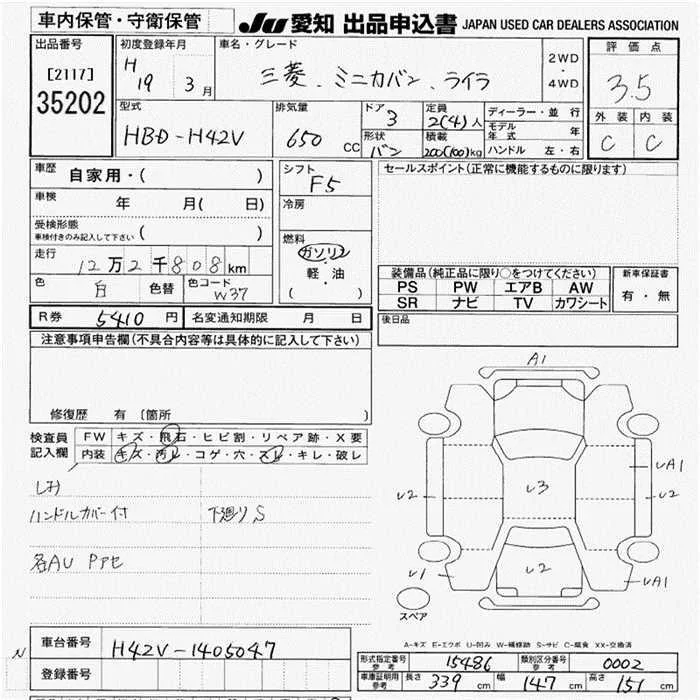 車内保管・守衛保管
JU 愛知 出品申込書 JAPAN USED CAR DEALERS ASSOCIATION
出品番号
[2117]
35202
初度登録年月
H 19 3月
車名・グレード
三菱、ミニカバン、ライラ
2WD
・
4WD
評価点
3.5
外装 内装
C C
型式
HBD-H42V
排気量
650 cc
ドア 3
形状 バン
定員 2(4)人
積載 200(100)kg
ディーラー・並行
モデル年式 年
ハンドル 左・右
車歴 自家用・( )
車検 年 月( 日)
受検形態
車検付きのみ記入して下さい ( )
走行 12万2千808km
色 白 色替 色コード W37
シフト F5
冷房
燃料
ガソリン
軽・油
( )
セールスポイント(正常に機能するものに限ります)
装備品(純正品に限り○をつけてください)
PS PW エアB AW
SR ナビ TV カワシート
新車保証書
有・無
R券 5410円 名変通知期限 月 日
後日品
注意事項申告欄(不具合内容等は具体的に記入して下さい)
修復歴 有 〔箇所 〕
検査員記入欄
FW キズ・飛石・ヒビ割・リペア跡・X要
内装 キズ・汚レ・コゲ・穴・スレ・キレ・破レ
シミ
ハンドルカバー付 下廻りS
各AU Pアセ
A1
V2
V3
VA1
V2
V1
V2
VA1
スペア
A-キズ E-エクボ U-凹み W-補修跡 S-サビ C-腐食 XX-交換済
N
車台番号 H42V-1405047
登録番号
形式指定番号参考 15486 類別区分番号参考 0002
車庫証明用参考 長さ 339cm 幅 147cm 高さ 151cm